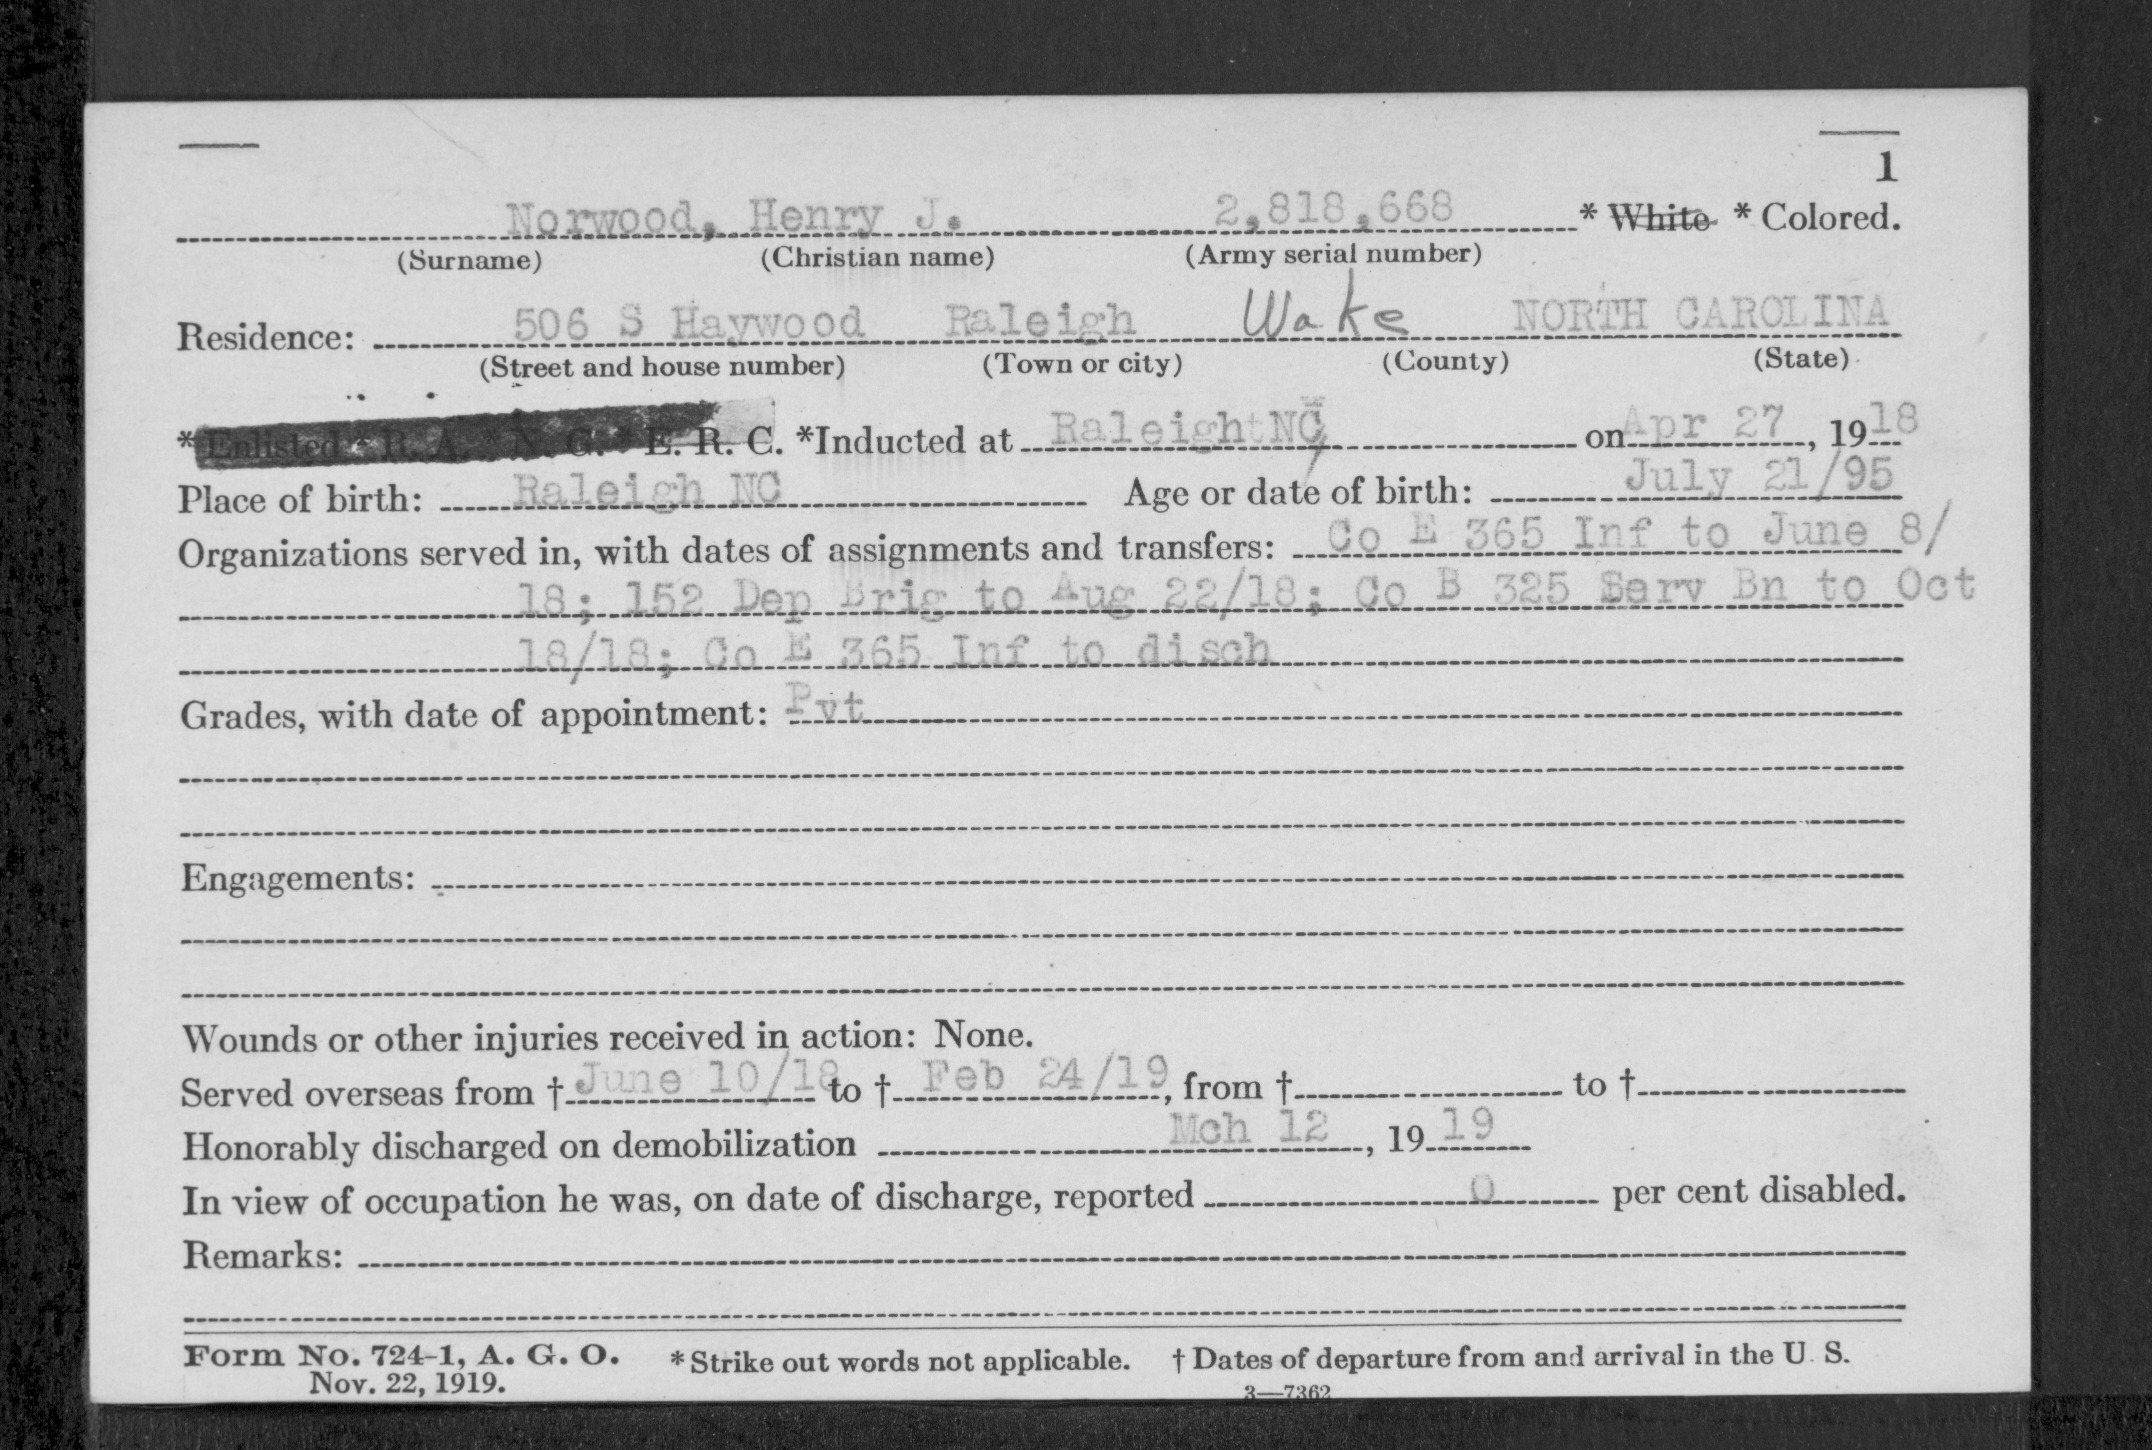 1
Norwood, Henry J. 2,818,668 * White * Colored.
(Surname) (Christian name) (Army serial number)
Residence: 506 S Haywood Raleigh Wake NORTH CAROLINA
(Street and house number) (Town or city) (County) (State)
* Enlisted * R. A. * N. G. * E. R. C. *Inducted at Raleigh NC on Apr 27, 1918
Place of birth: Raleigh NC Age or date of birth: July 21/95
Organizations served in, with dates of assignments and transfers: Co E 365 Inf to June 8/
18; 152 Dep Brig to Aug 22/18; Co B 325 Serv Bn to Oct
18/18; Co E 365 Inf to disch
Grades, with date of appointment: Pvt
Engagements:
Wounds or other injuries received in action: None.
Served overseas from † June 10/18 to † Feb 24/19, from † to †
Honorably discharged on demobilization Mch 12, 1919
In view of occupation he was, on date of discharge, reported 0 per cent disabled.
Remarks:
Form No. 724-1, A. G. O. * Strike out words not applicable. † Dates of departure from and arrival in the U. S.
Nov. 22, 1919. 3—7362